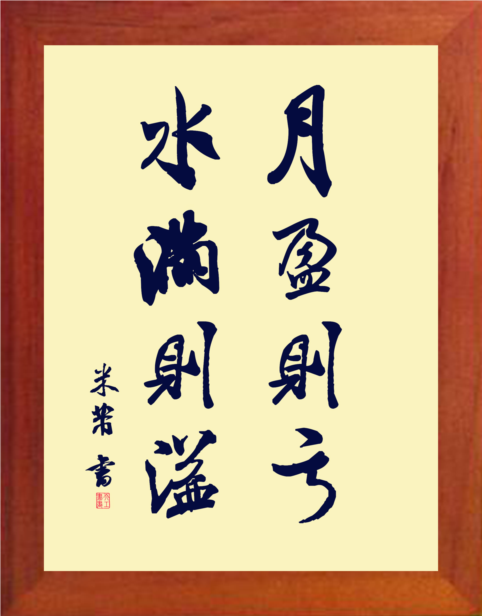 月盈則亏
水滿則溢
米芾書